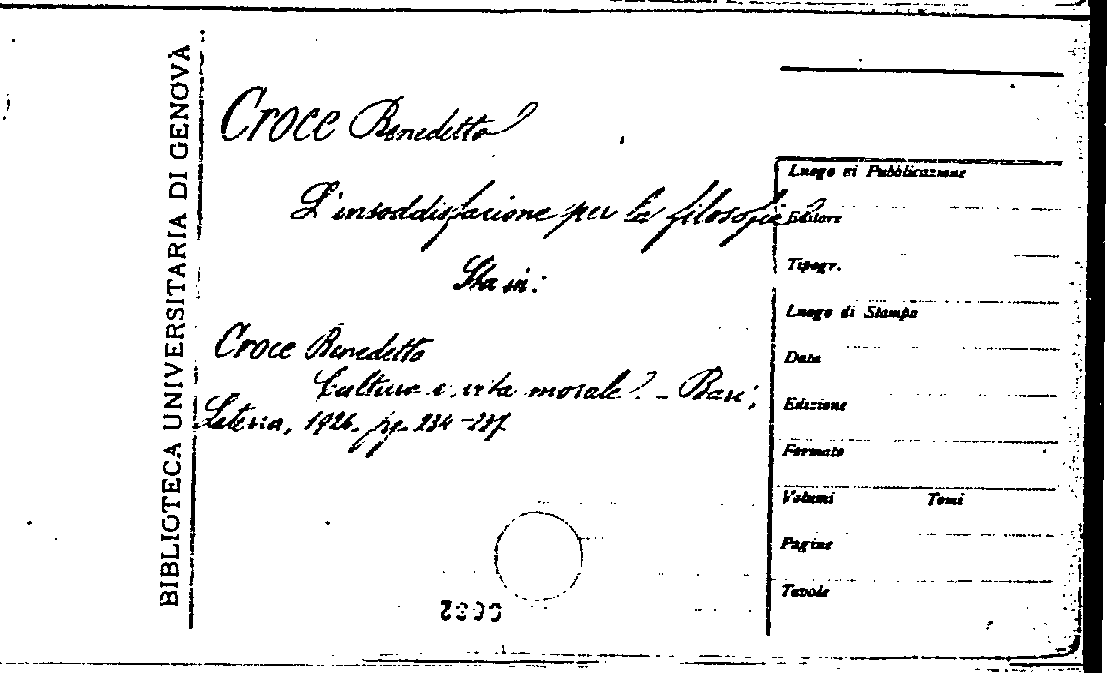 BIBLIOTECA UNIVERSITARIA DI GENOVA
Croce Benedetto
L'insoddisfazione per la filosofia
Sta in:
Croce Benedetto
Cultura e vita morale. - Bari,
Laterza, 1926. pp. 234-237
Luogo di Pubblicazione
Editore
Tipogr.
Luogo di Stampa
Data
Edizione
Formato
Volumi Tomi
Pagine
Tavole